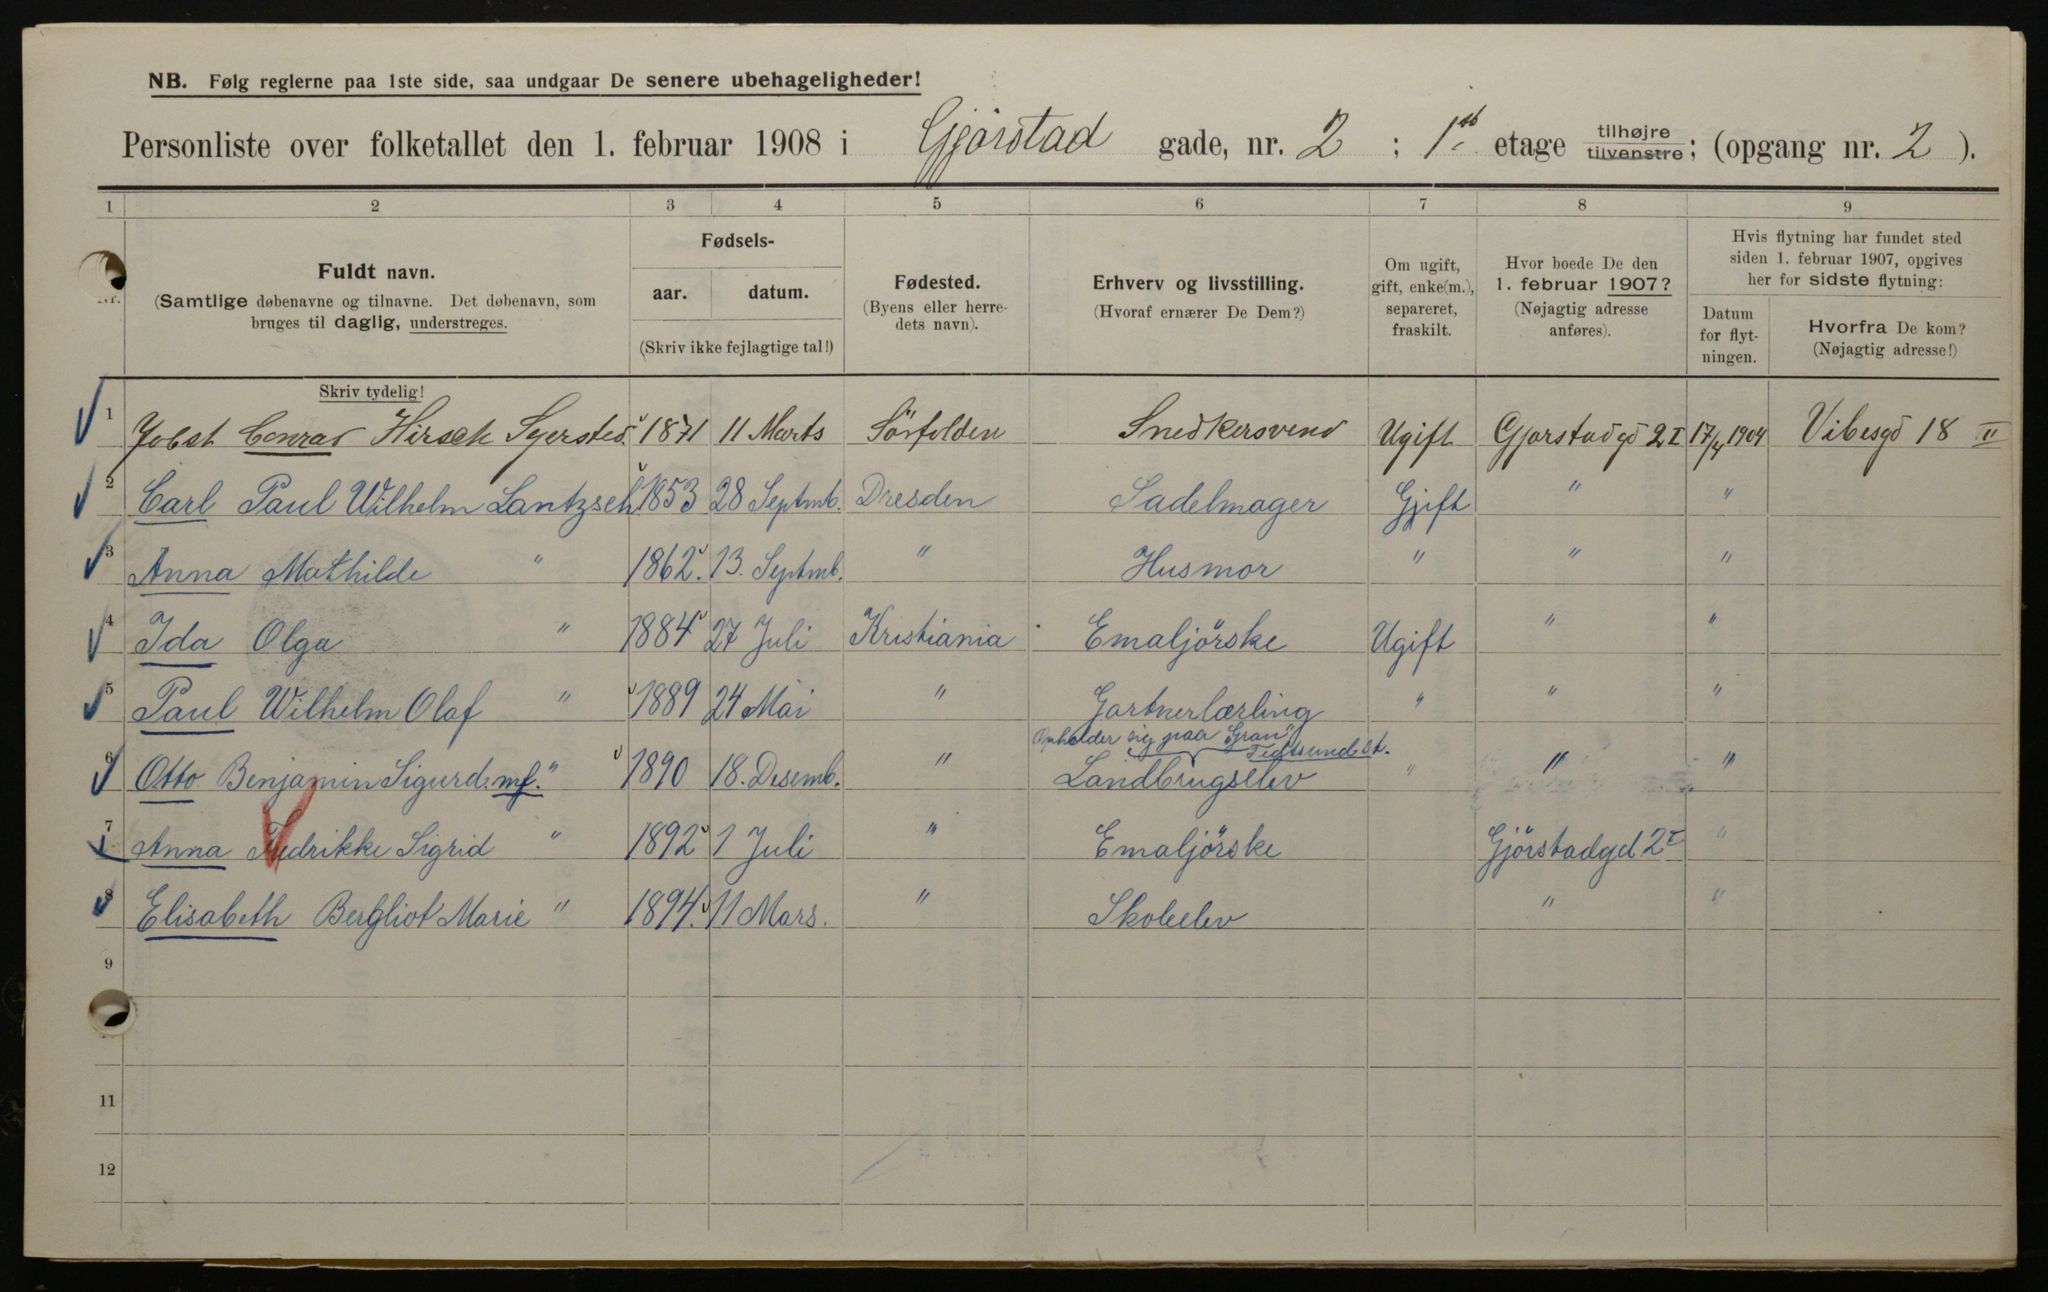 NB. Følg reglerne paa 1ste side, saa undgaar De senere ubehageligheder!
Personliste over folketallet den 1. februar 1908 i Gjørstad gade, nr. 2 ; 1ste etage tilhøjre tilvenstre; (opgang nr. 2 ).
1 2 3 4 5 6 7 8 9
Nr. Fuldt navn. (Samtlige døbenavne og tilnavne. Det døbenavn, som bruges til daglig, understreges.
Skriv tydelig!
Fødsels-
aar. datum.
(Skriv ikke fejlagtige tal!)
Fødested.
(Byens eller herre-
dets navn).
Erhverv og livsstilling.
(Hvoraf ernærer De Dem?)
Om ugift,
gift, enke(m.),
separeret,
fraskilt.
Hvor boede De den
1. februar 1907?
(Nøjagtig adresse
anføres).
Hvis flytning har fundet sted
siden 1. februar 1907, opgives
her for sidste flytning:
Datum
for flyt-
ningen.
Hvorfra De kom?
(Nøjagtig adresse!)
1 Jobst Conrad Hirsch Sjersted 1871 11 Marts Sörfolden Snedkersvend Ugift Gjørstadgd 2 I 17/4 1904 Vibesgd 18 II
2 Carl Paul Wilhelm Lantzsch 1853 28 Septmb. Dresden Sadelmager Gjift " "
3 Anna Mathilde " 1862. 13. Septmb. " Husmor " " "
4 Ida Olga " 1884 27 Juli Kristiania Emaljörske Ugift " "
5 Paul Wilhelm Olaf " 1889 24 Mai " Gartnerlærling " " "
Opholder sig paa "Gran"
6 Otto Benjamin Sigurd. mf. " 1890 18. Desemb. " Landbrugselev " " "
7 Anna Fredrikke Sigrid " 1892 1 Juli " Emaljörske Gjörstadgd 2 I "
8 Elisabeth Bergliot Marie " 1894. 11 Mars. " Skoleelev " "
9
11
12